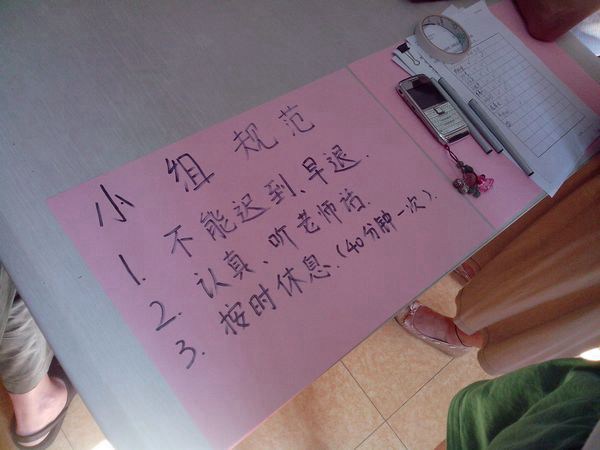 小组规范
1. 不能迟到、早退.
2. 认真、听老师话.
3. 按时休息.(40分钟一次).